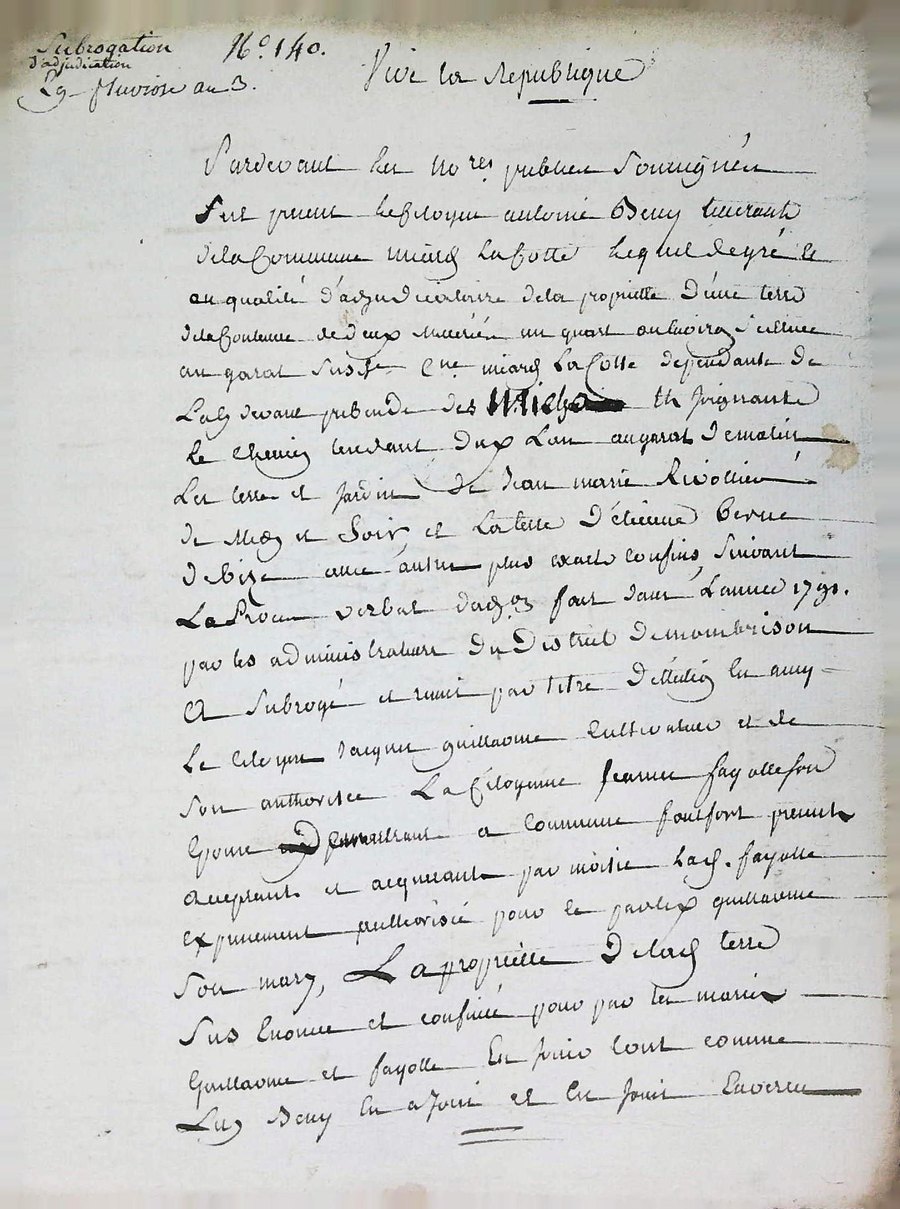 Subrogation
d'adjudication
29 Pluviose an 3.
No. 140.
Vive la Republique
Pardevant les nores publics Soussignés
fut present le Citoyen antoine Beny
de la Commune miard La Cotte Lequel de gré et
en qualité d'adjudicataire de la propriette d'une terre
de la Contenue de deux un quart ou Environ Scituée
au garat Susde Cne miard La Cotte dependante de
La ci devant prebende des th Joignante
Le Chemin tendant du au garat de matin
Les terre et Jardin de Jean marie Rivollier
de Midy et Soir et La terre d'étienne Berne
de bize avec autres plus exacts confins, Suivant
Le Proces verbal d'adjon fait dans L'année 1791.
par les administrateurs du District de montbrison
A Subrogé et remit par titre
Le Citoyen Jacques guillaume Cultivateur et de
Son authorisée La Citoyenne Jeanne fayolle Son
Epouse a commune fontfort presents
acceptants et acquerants par moitie Lade. fayolle
Expressement authorisée pour le guillaume
Son mary, La propriette de lade terre
Sus Enoncée et confinée pour par les mariés
guillaume et fayolle En Jouir tout comme
Led Beny En a Joui et En Jouit En vertu